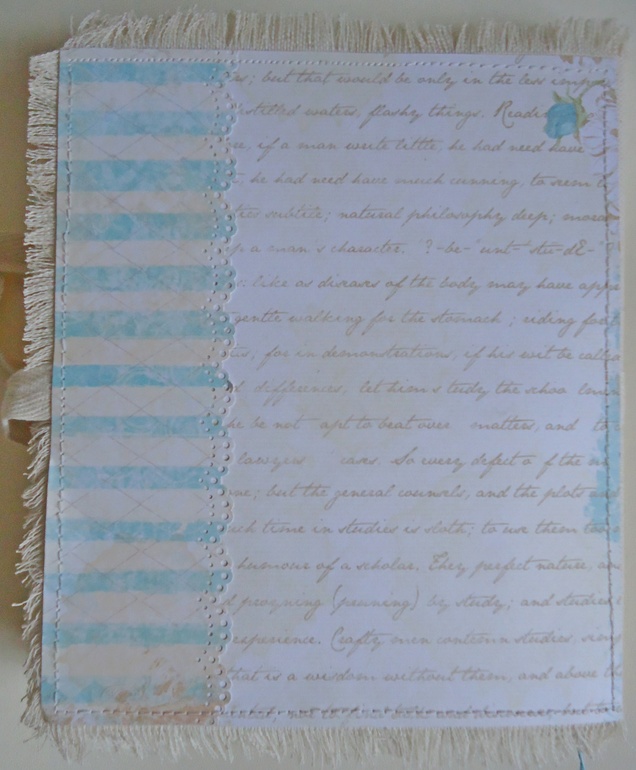 but that would be only in the less
distilled waters, flashy things. Reade
if a man write little, he had need have
he had need have much cunning, to seem
subtile; natural philosophy deep; mora
a man s character.
like as diseases of the body may have appr
gentle walking for the stomach; riding for
for in demonstrations, if his wit be calle
differences, let him study the schoo
he be not apt to beat over matters, and to
lawyers cases. So every defect o f the m
but the general counsels, and the plots and
time in studies is sloth; to use them too
humour of a scholar. They perfect nature, an
proyning (pruning) by study; and studies
experience. Crafty men contemn studies, sim
that is a wisdom without them, and above th